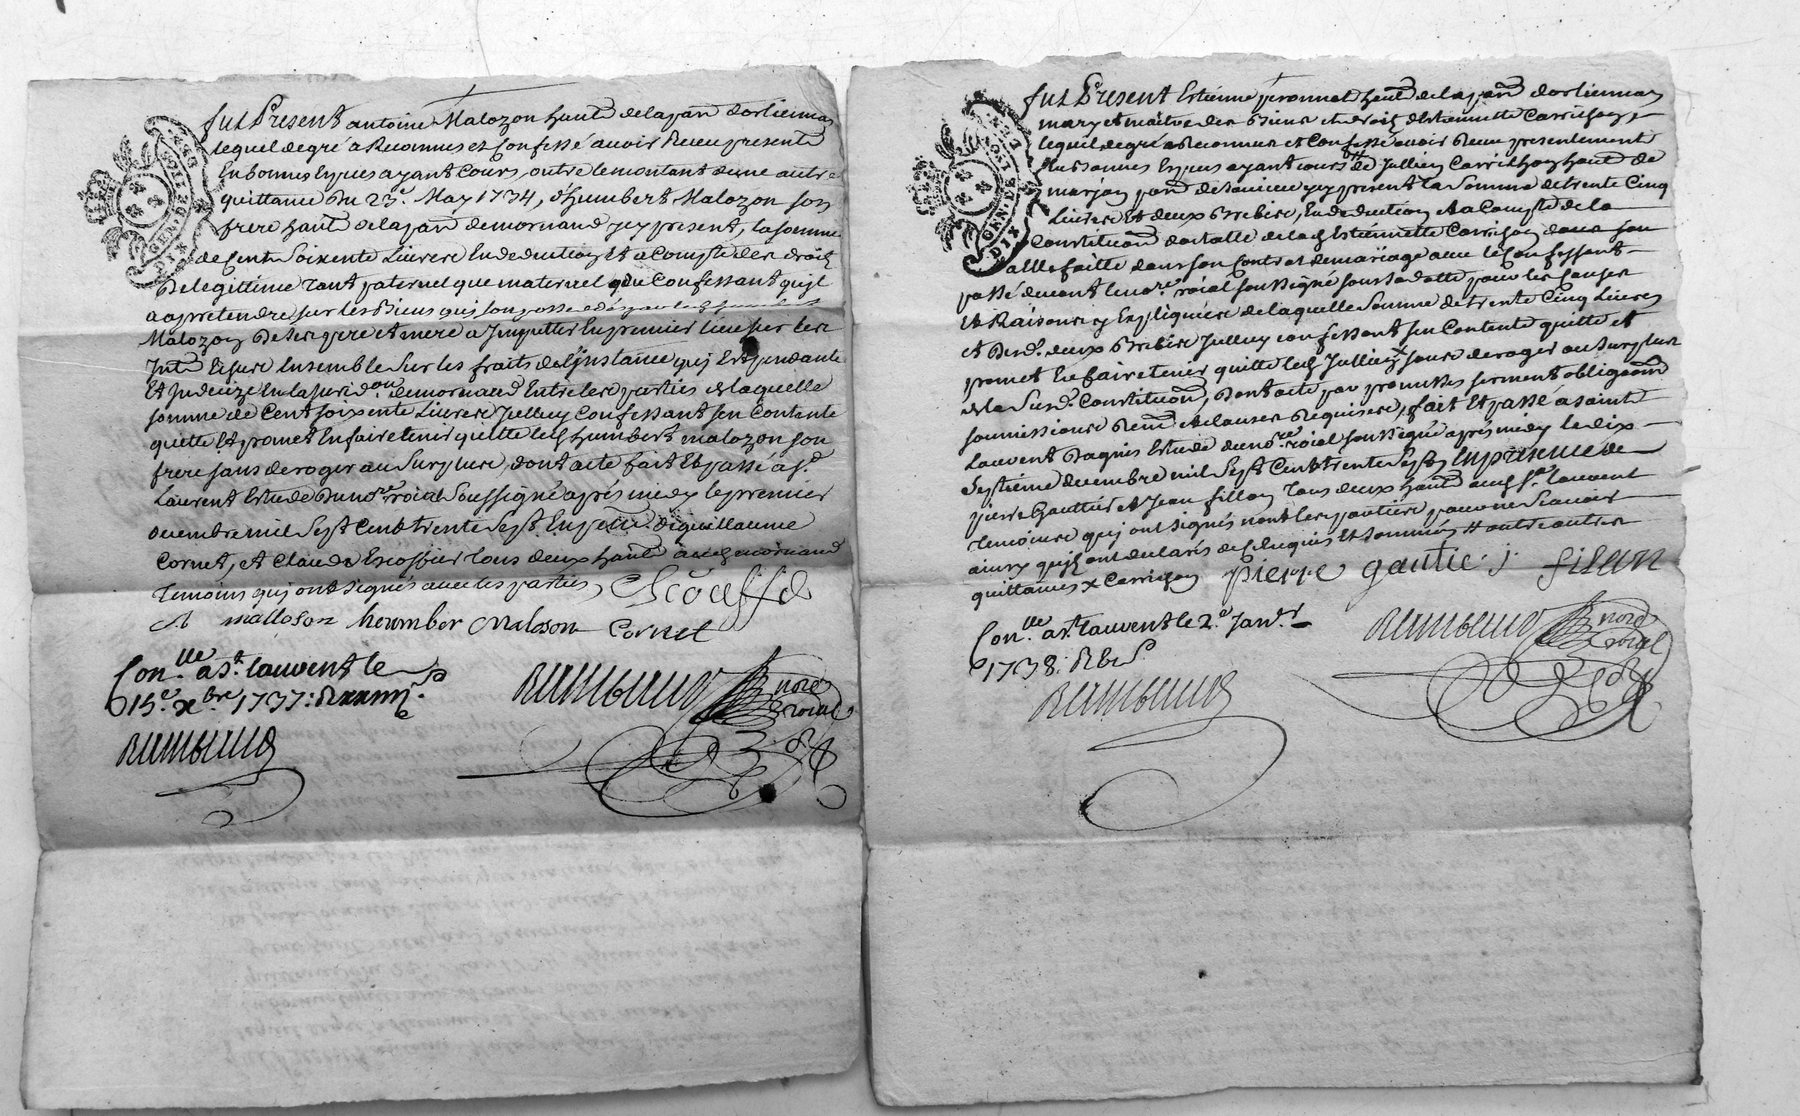 GEN. DE LYON
DIX DEN
fut Present antoine Malozon habt delapar dorlienna
lequel degré a Reconnus et Confessé auoir Receu presente
En bonnes Especes ayant Cours, outre lemontant dune autre
quittance Du 23e. May 1734, d'humbert Malozon son
frere habt delapar demornand icy present, la somme
de Cent Soixente Liures En deduction Et a Compte des droits
De legitime tant paternel que maternel que Confessant quil
a apretendre sur les Biens qui son
Malozon Deses pere et mere a Imputter En premier lieu sur les
Ensemble Sur les fraits de l'jnstance qui Est pendante
Et Judecize En la Juridon demornand Entre les parties de laquelle
somme de Cent soixente Liures Jcelluy Confessant sen Contente
quitte Et promet En faire tenir quitte led humbert malozon son
frere sans deroger au Surplus, dont acte fait Et passé a St
Laurent Estude Du nore roial Soussigné aprés midy le premier
decembre mil Sept Cent trente Sept En pnce de guillaume
Cornet, et Claude Escoffier tous deux habts aud mornand
temoins qui ont Signés auec les parties,
A mallozon heumber malosom Cornet
Conlle a St. laurent le
15e. xbre 1737: R
nore roial
GEN. DE LYON
DIX DEN
fut Present Estienne peronnet habt delapar dorlienna
mary et maitre des Biens et droits dEstiennette Carrichon,
lequel degré a Reconnus et Confessé auoir Receu presentement
En bonnes Especes ayant cours de Jullien Carrichon habt de
par de icy present la Somme de trente Cinq
Liures Et deux Brebies, En deduction et a Compte de la
Constitution dotalle de lad Estiennette Carrichon
a Elle faitte dans son Contrat de mariage auec le Confessant
passé deuant le nore roial soussigné sous sa datte pour les Causes
Et Raisons y Expliquées de laquelle Somme de trente Cinq Liures
et Desd. deux Brebies Jcelluy confessant sen Contente quitte et
promet En faire tenir quitte led Jullien sans deroger au Surplus
de la Susd. Constitution, Dont acte par promesses serment obligeaon
soumissions Renon et clauses Requises, fait Et passé a saint
Laurent Dagnis Estude du nore roial soussigné aprés midy le dix
Septieme decembre mil Sept Cent trente Sept En presence de
pierre Gauttier et Jean fillon tous deux habts aud St. laurent
temoins qui ont signés non les parties pour ne Scauoir
ainsy quils ont declarés de ce Enquis Et sommés # outre autres
quittances x Carrichon pierre gautie j. filon
Conlle a St. laurent le 2e Janer
1738:
nore roial